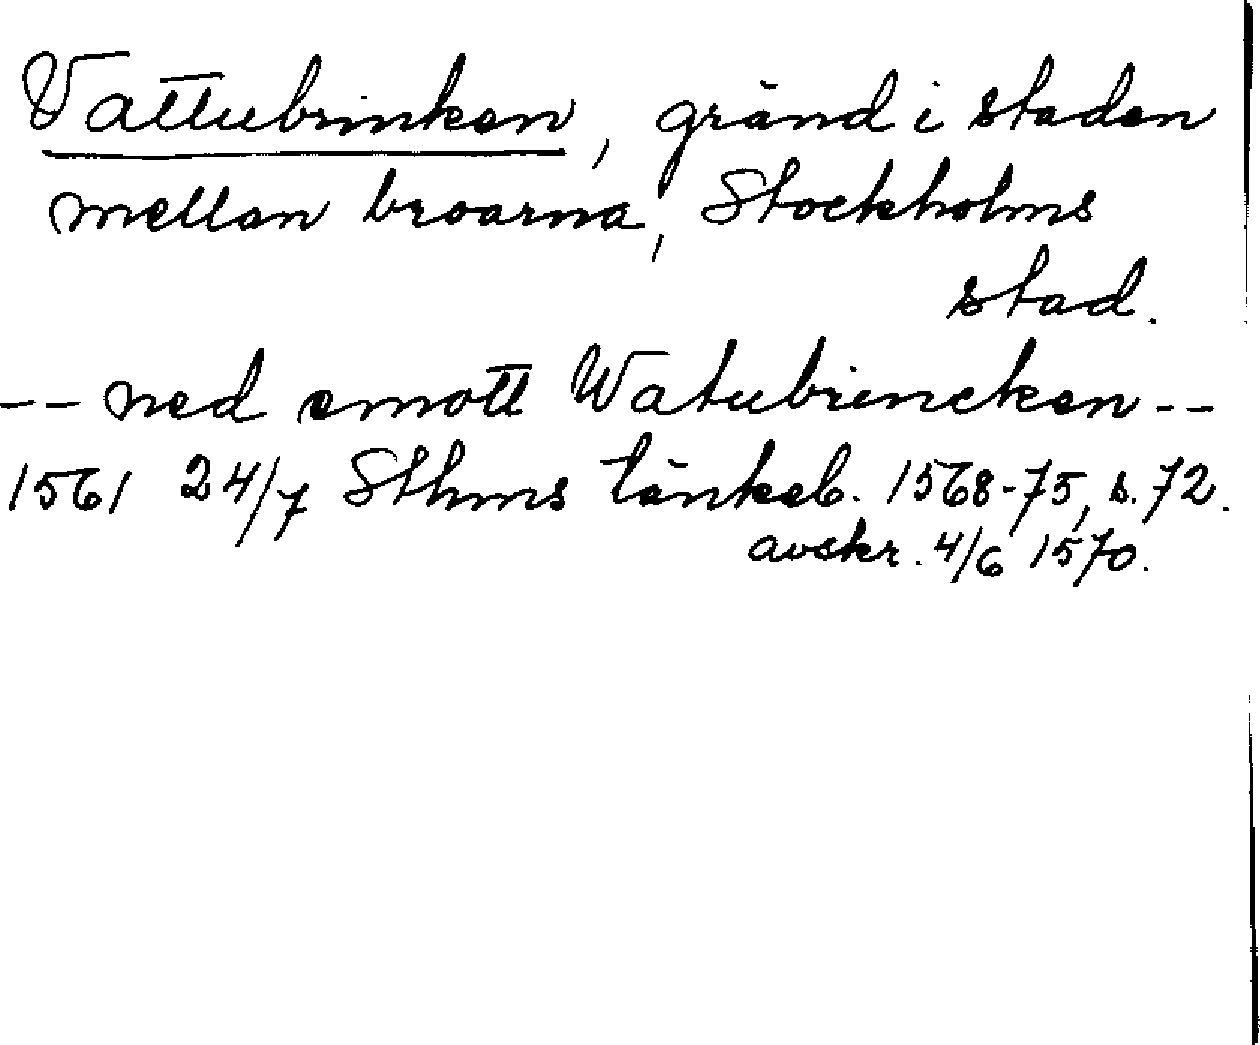 Vattubrinken, gränd i staden
mellan broarna, Stockholms
stad.
-- ned emott Watubrincken --
1561 24/7 Sthms tänkeb. 1568-75, s. 72.
avskr. 4/6 1570.